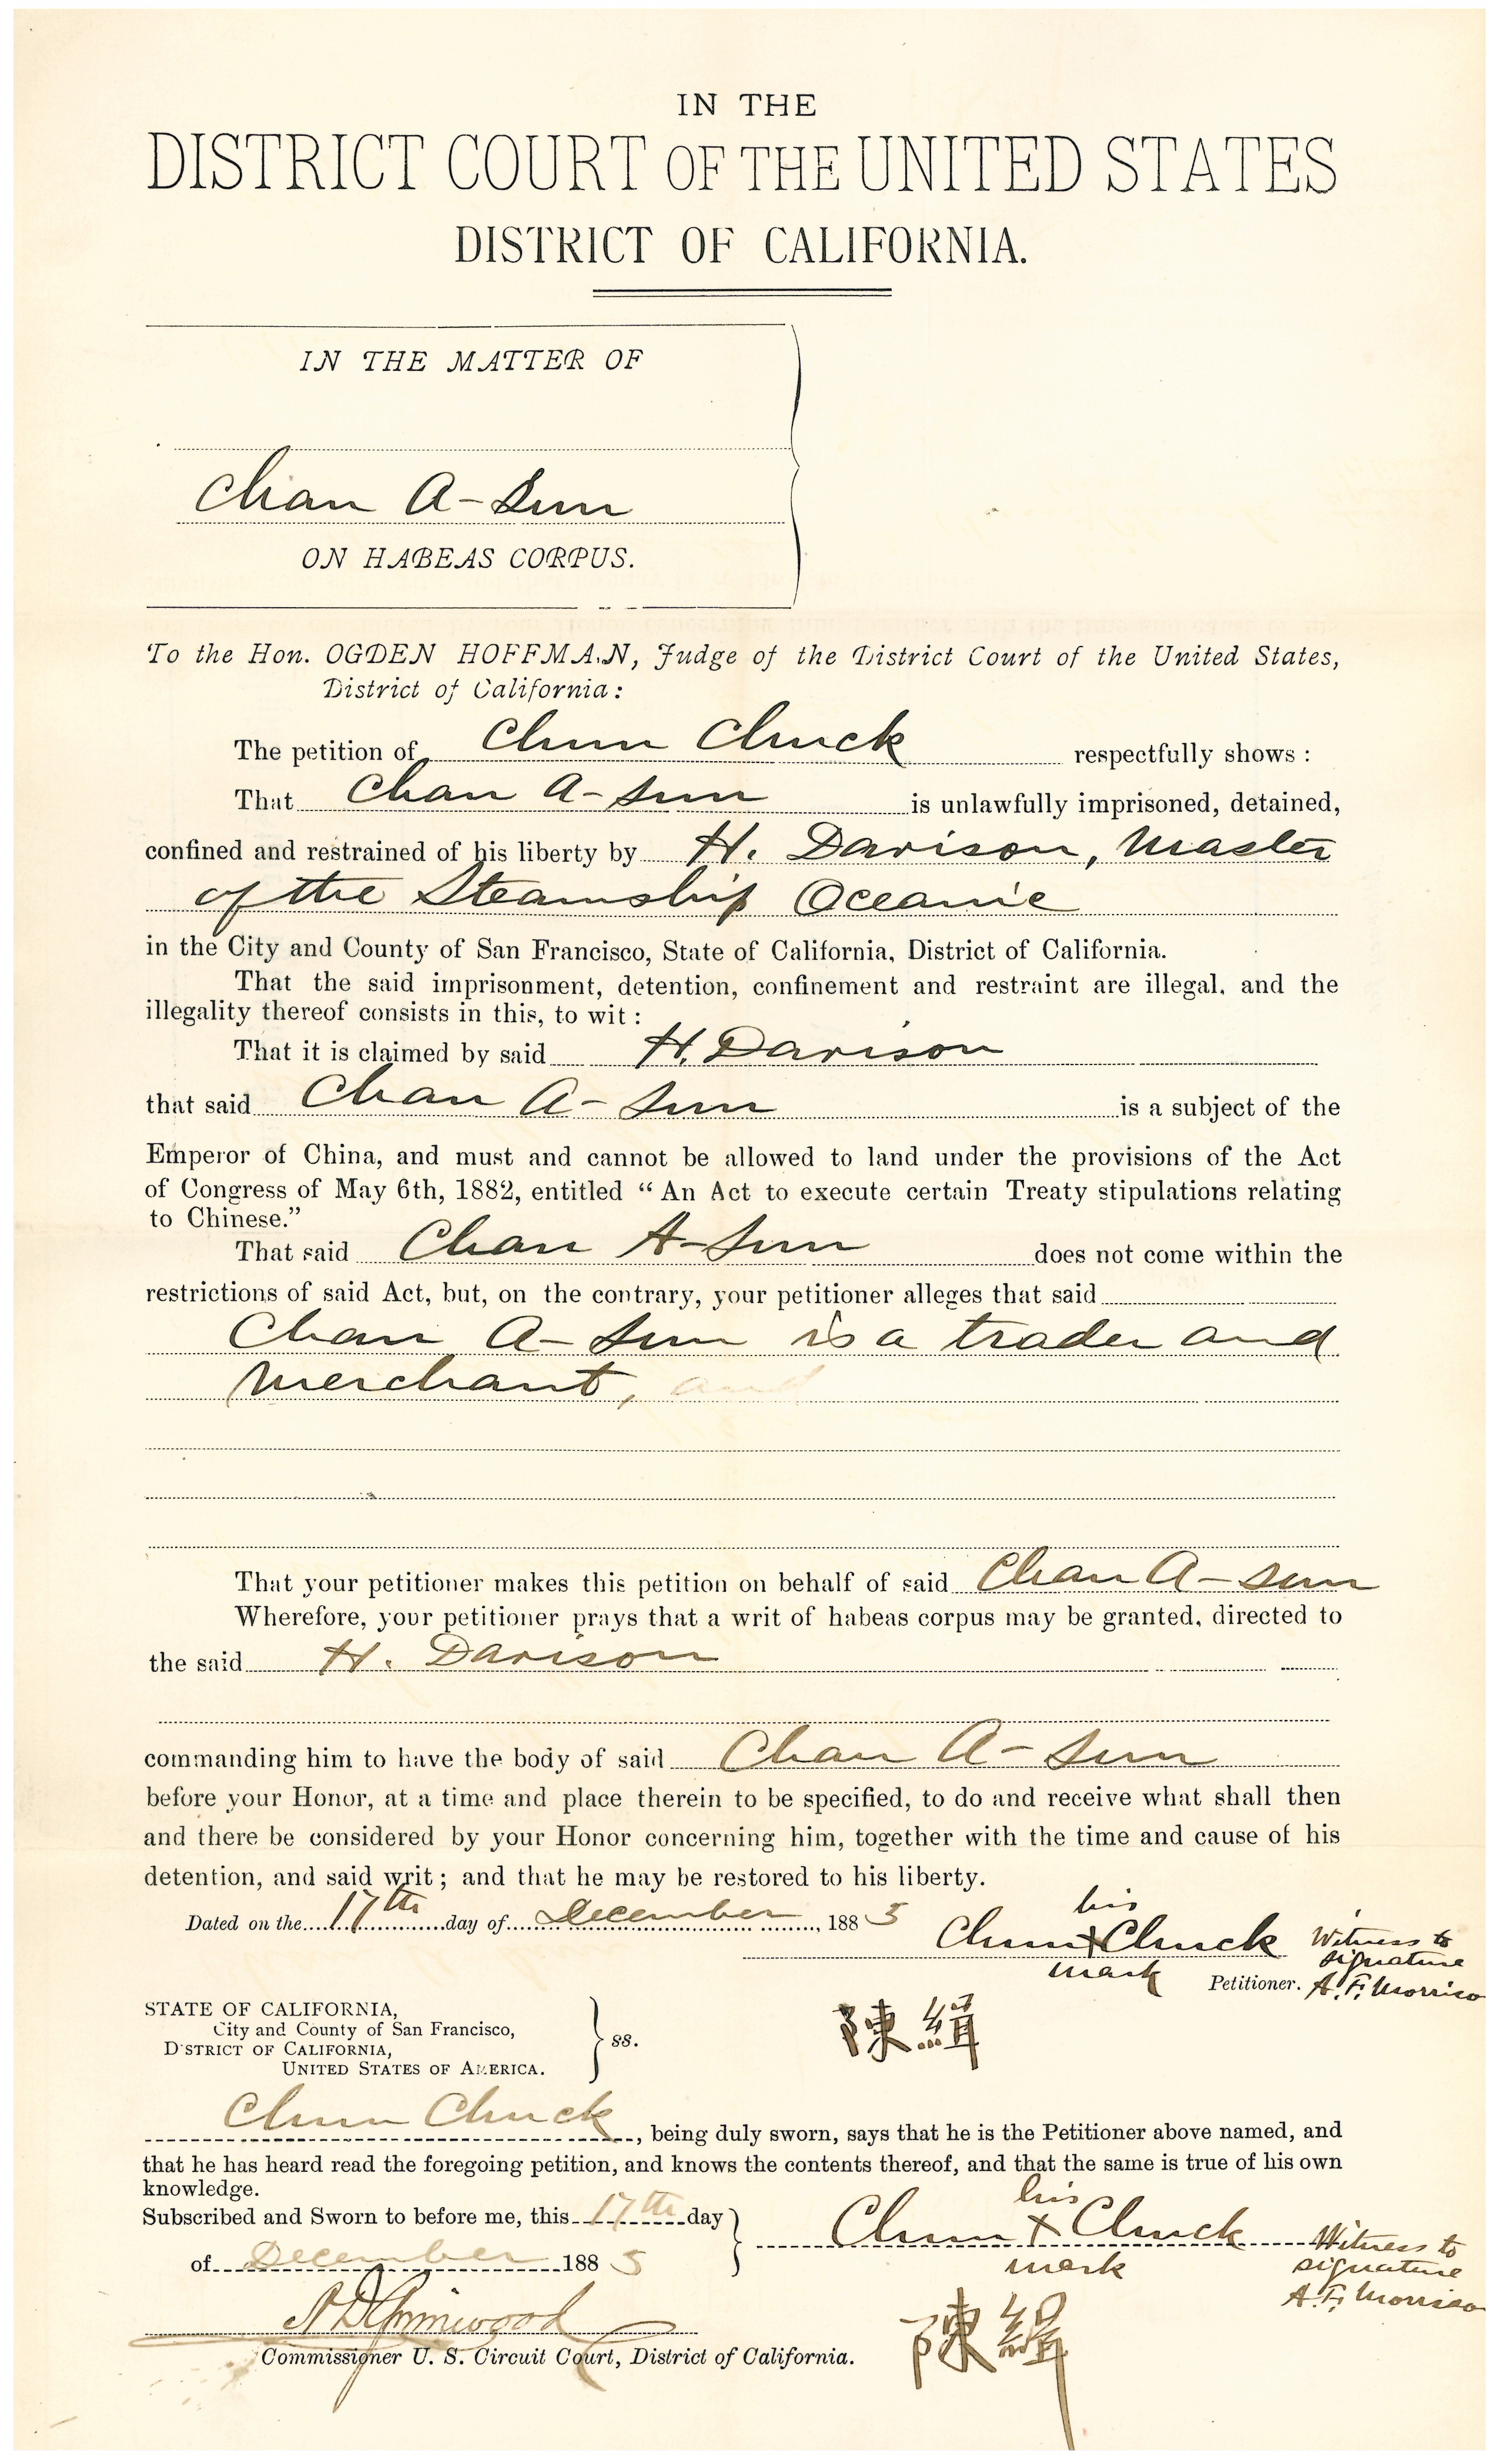 IN THE
DISTRICT COURT OF THE UNITED STATES
DISTRICT OF CALIFORNIA.
IN THE MATTER OF
Chan A-Sun
ON HABEAS CORPUS.
To the Hon. OGDEN HOFFMAN, Judge of the District Court of the United States,
District of California:
The petition of Chun Chuck respectfully shows:
That Chan A-Sun is unlawfully imprisoned, detained,
confined and restrained of his liberty by H. Davison, Master
of the Steamship Oceanic
in the City and County of San Francisco, State of California, District of California.
That the said imprisonment, detention, confinement and restraint are illegal, and the
illegality thereof consists in this, to wit:
That it is claimed by said H. Davison
that said Chan A-Sun is a subject of the
Emperor of China, and must and cannot be allowed to land under the provisions of the Act
of Congress of May 6th, 1882, entitled “An Act to execute certain Treaty stipulations relating
to Chinese.”
That said Chan A-Sun does not come within the
restrictions of said Act, but, on the contrary, your petitioner alleges that said
Chan A-Sun is a trader and
merchant, and
That your petitioner makes this petition on behalf of said Chan A-Sun
Wherefore, your petitioner prays that a writ of habeas corpus may be granted, directed to
the said H. Davison
commanding him to have the body of said Chan A-Sun
before your Honor, at a time and place therein to be specified, to do and receive what shall then
and there be considered by your Honor concerning him, together with the time and cause of his
detention, and said writ; and that he may be restored to his liberty.
Dated on the 17th day of December, 1885
his
Chun + Chuck
mark
Petitioner.
Witness to
signature
A. F. Morriso
陳緝
STATE OF CALIFORNIA,
City and County of San Francisco,
DISTRICT OF CALIFORNIA,
UNITED STATES OF AMERICA.
ss.
Chun Chuck, being duly sworn, says that he is the Petitioner above named, and
that he has heard read the foregoing petition, and knows the contents thereof, and that the same is true of his own
knowledge.
Subscribed and Sworn to before me, this 17th day
of December 1885
his
Chun + Chuck
mark
Witness to
signature
A. F. Morriso
陳緝
Commissioner U. S. Circuit Court, District of California.